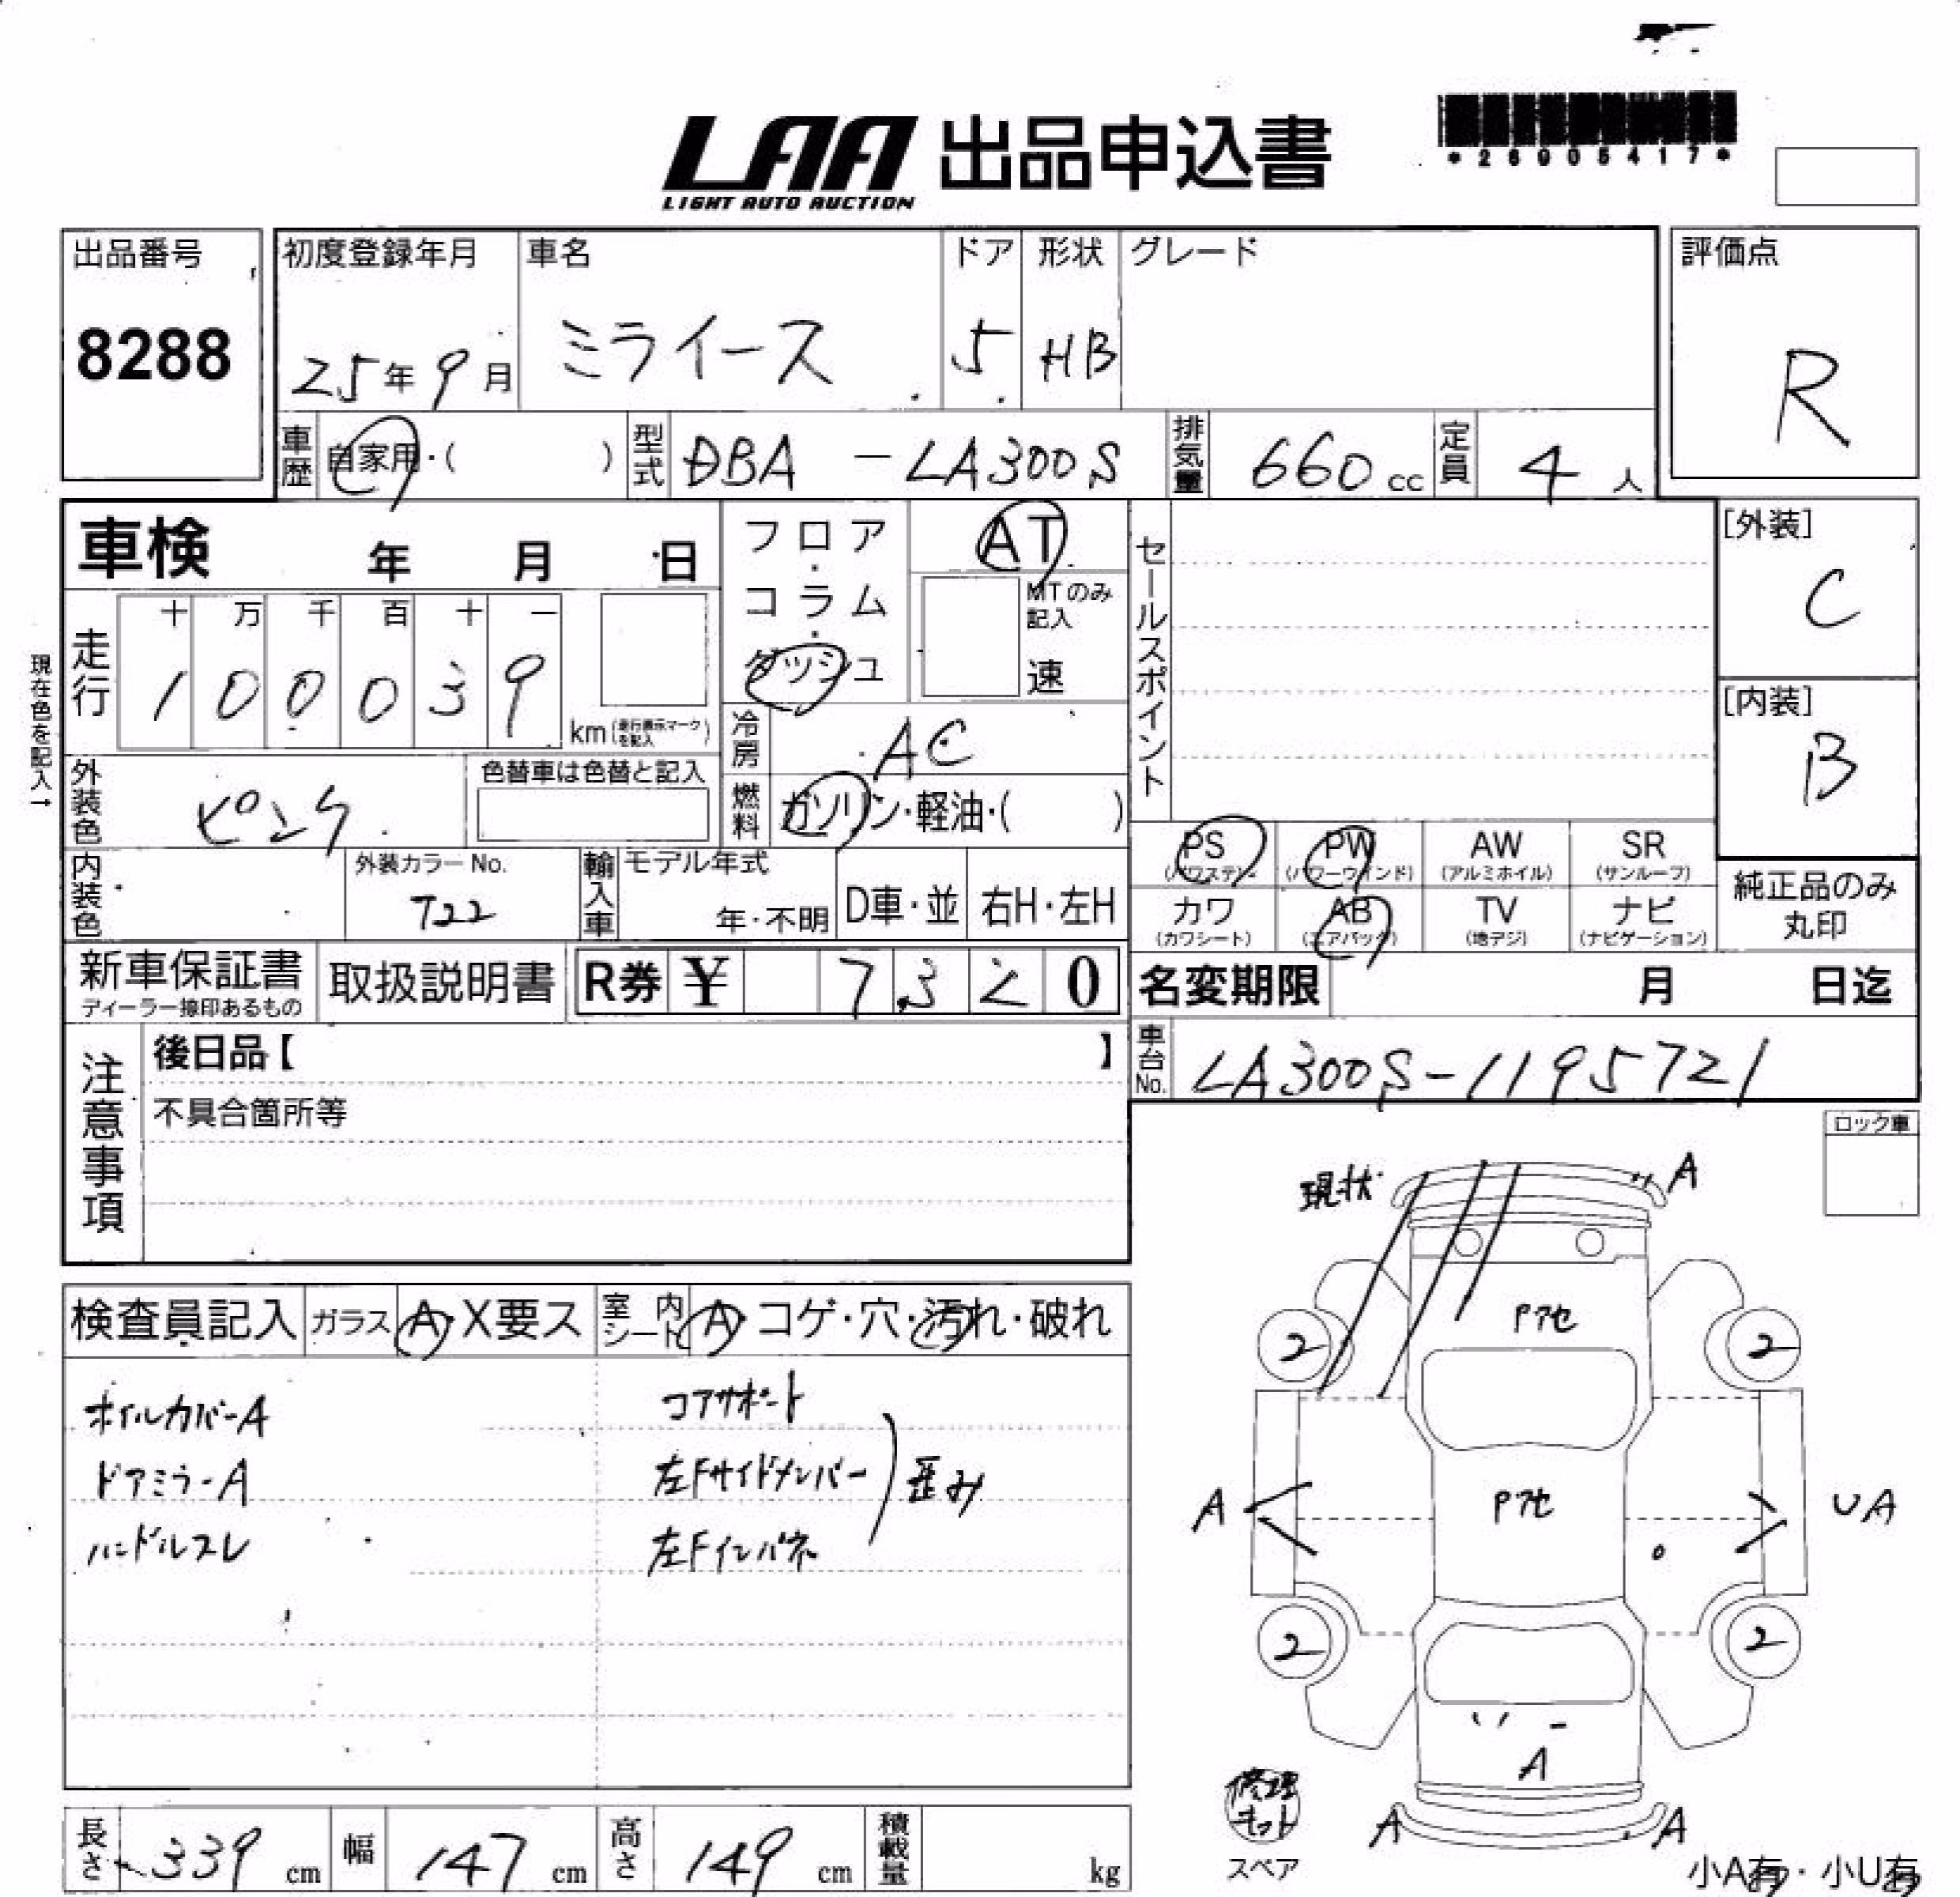 LAA 出品申込書
LIGHT AUTO AUCTION
*26905417*
出品番号
8288
初度登録年月
25年9月
車名
ミライース
ドア
5
形状
HB
グレード
評価点
R
車歴
自家用・( )
型式
DBA-LA300S
排気量
660cc
定員
4人
車検 年 月 日
現在色を記入→
走行
十 万 千 百 十 一
1 0 0 0 3 9
km(走行表示マークを記入)
フロア・コラム・ダッシュ
AT
MTのみ記入
速
冷房
AC
燃料
ガソリン・軽油・( )
セールスポイント
[外装]
C
[内装]
B
外装色
ピンク
色替車は色替と記入
内装色
外装カラーNo.
T22
輸入車
モデル年式
年・不明
D車・並
右H・左H
PS
(パワステ)
PW
(パワーウィンド)
AW
(アルミホイル)
SR
(サンルーフ)
カワ
(カワシート)
AB
(エアバッグ)
TV
(地デジ)
ナビ
(ナビゲーション)
純正品のみ
丸印
新車保証書
ディーラー捺印あるもの
取扱説明書
R券 ¥ 7320
名変期限 月 日迄
車台No.
LA300S-1195721
注意事項
後日品【 】
不具合箇所等
ロック車
検査員記入
ガラス
A・X要ス
室内シート
A・コゲ・穴・汚れ・破れ
ホイルカバーA
ドアミラーA
ハンドルスレ
コアサポート
左Fサイドメンバー
左Fインパネ
歪み
現状
A
Pアセ
2
2
Pアセ
A
UA
2
2
A
A
A
修理キット
スペア
小A有・小U有
長さ
339cm
幅
147cm
高さ
149cm
積載量
kg